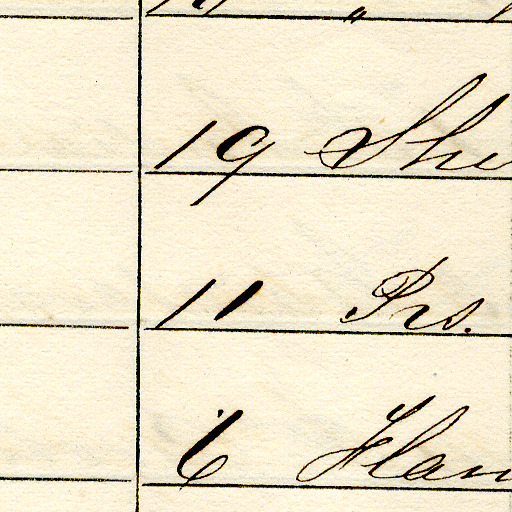 19 She
11 Prs.
6 Flan